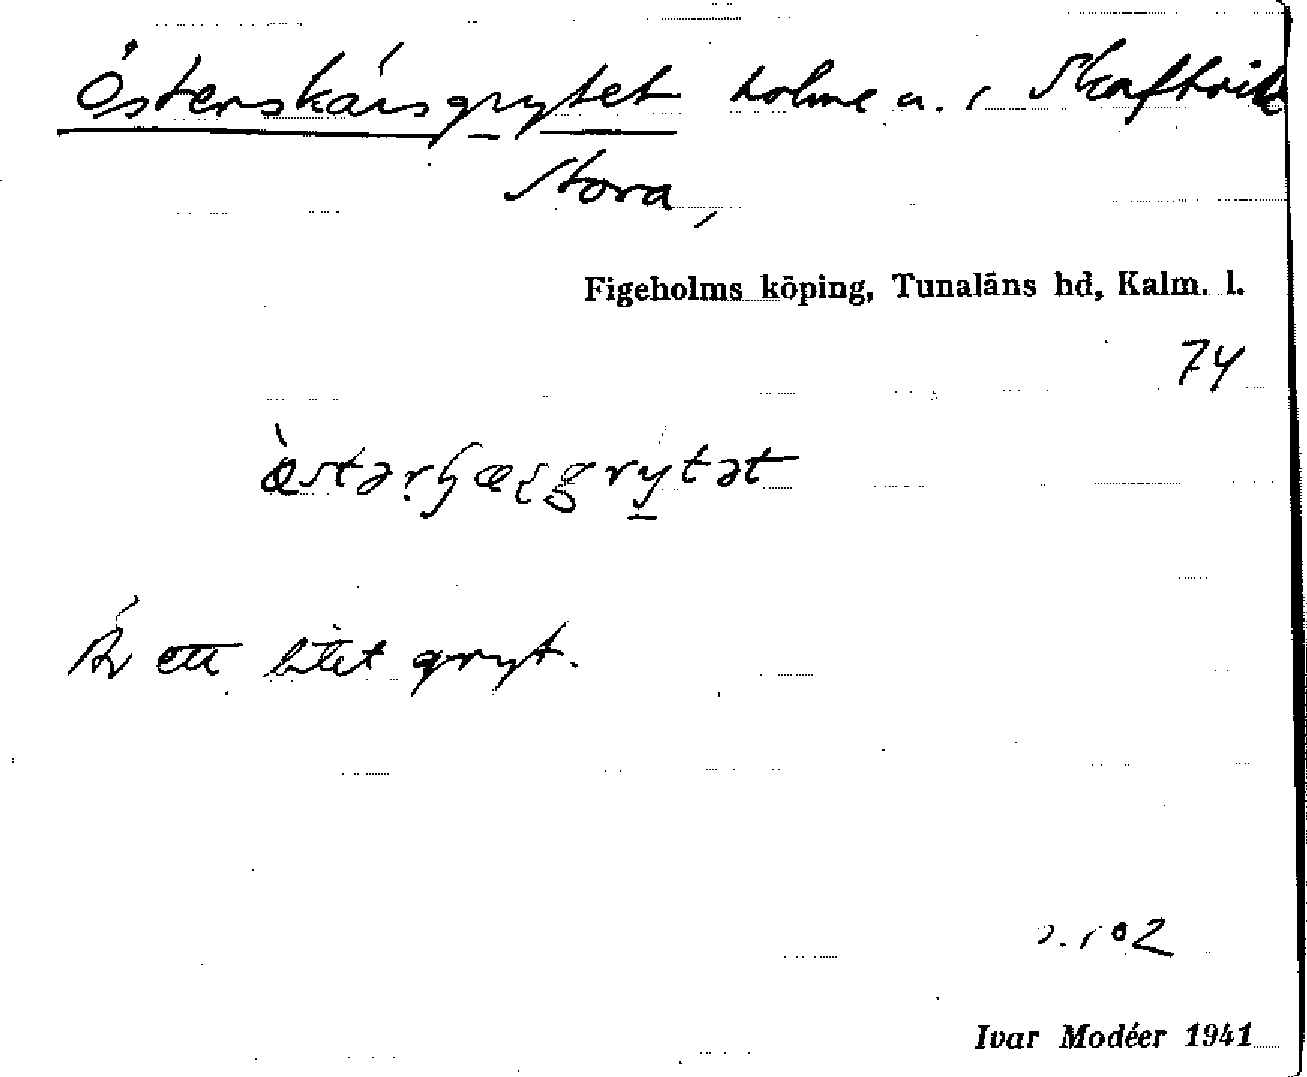 Österskärsgrytet holme n. i Skaftvik
Stora,
Figeholms köping, Tunaläns hd, Kalm. l.
74
Är ett litet gryt.
Ivar Modéer 1941